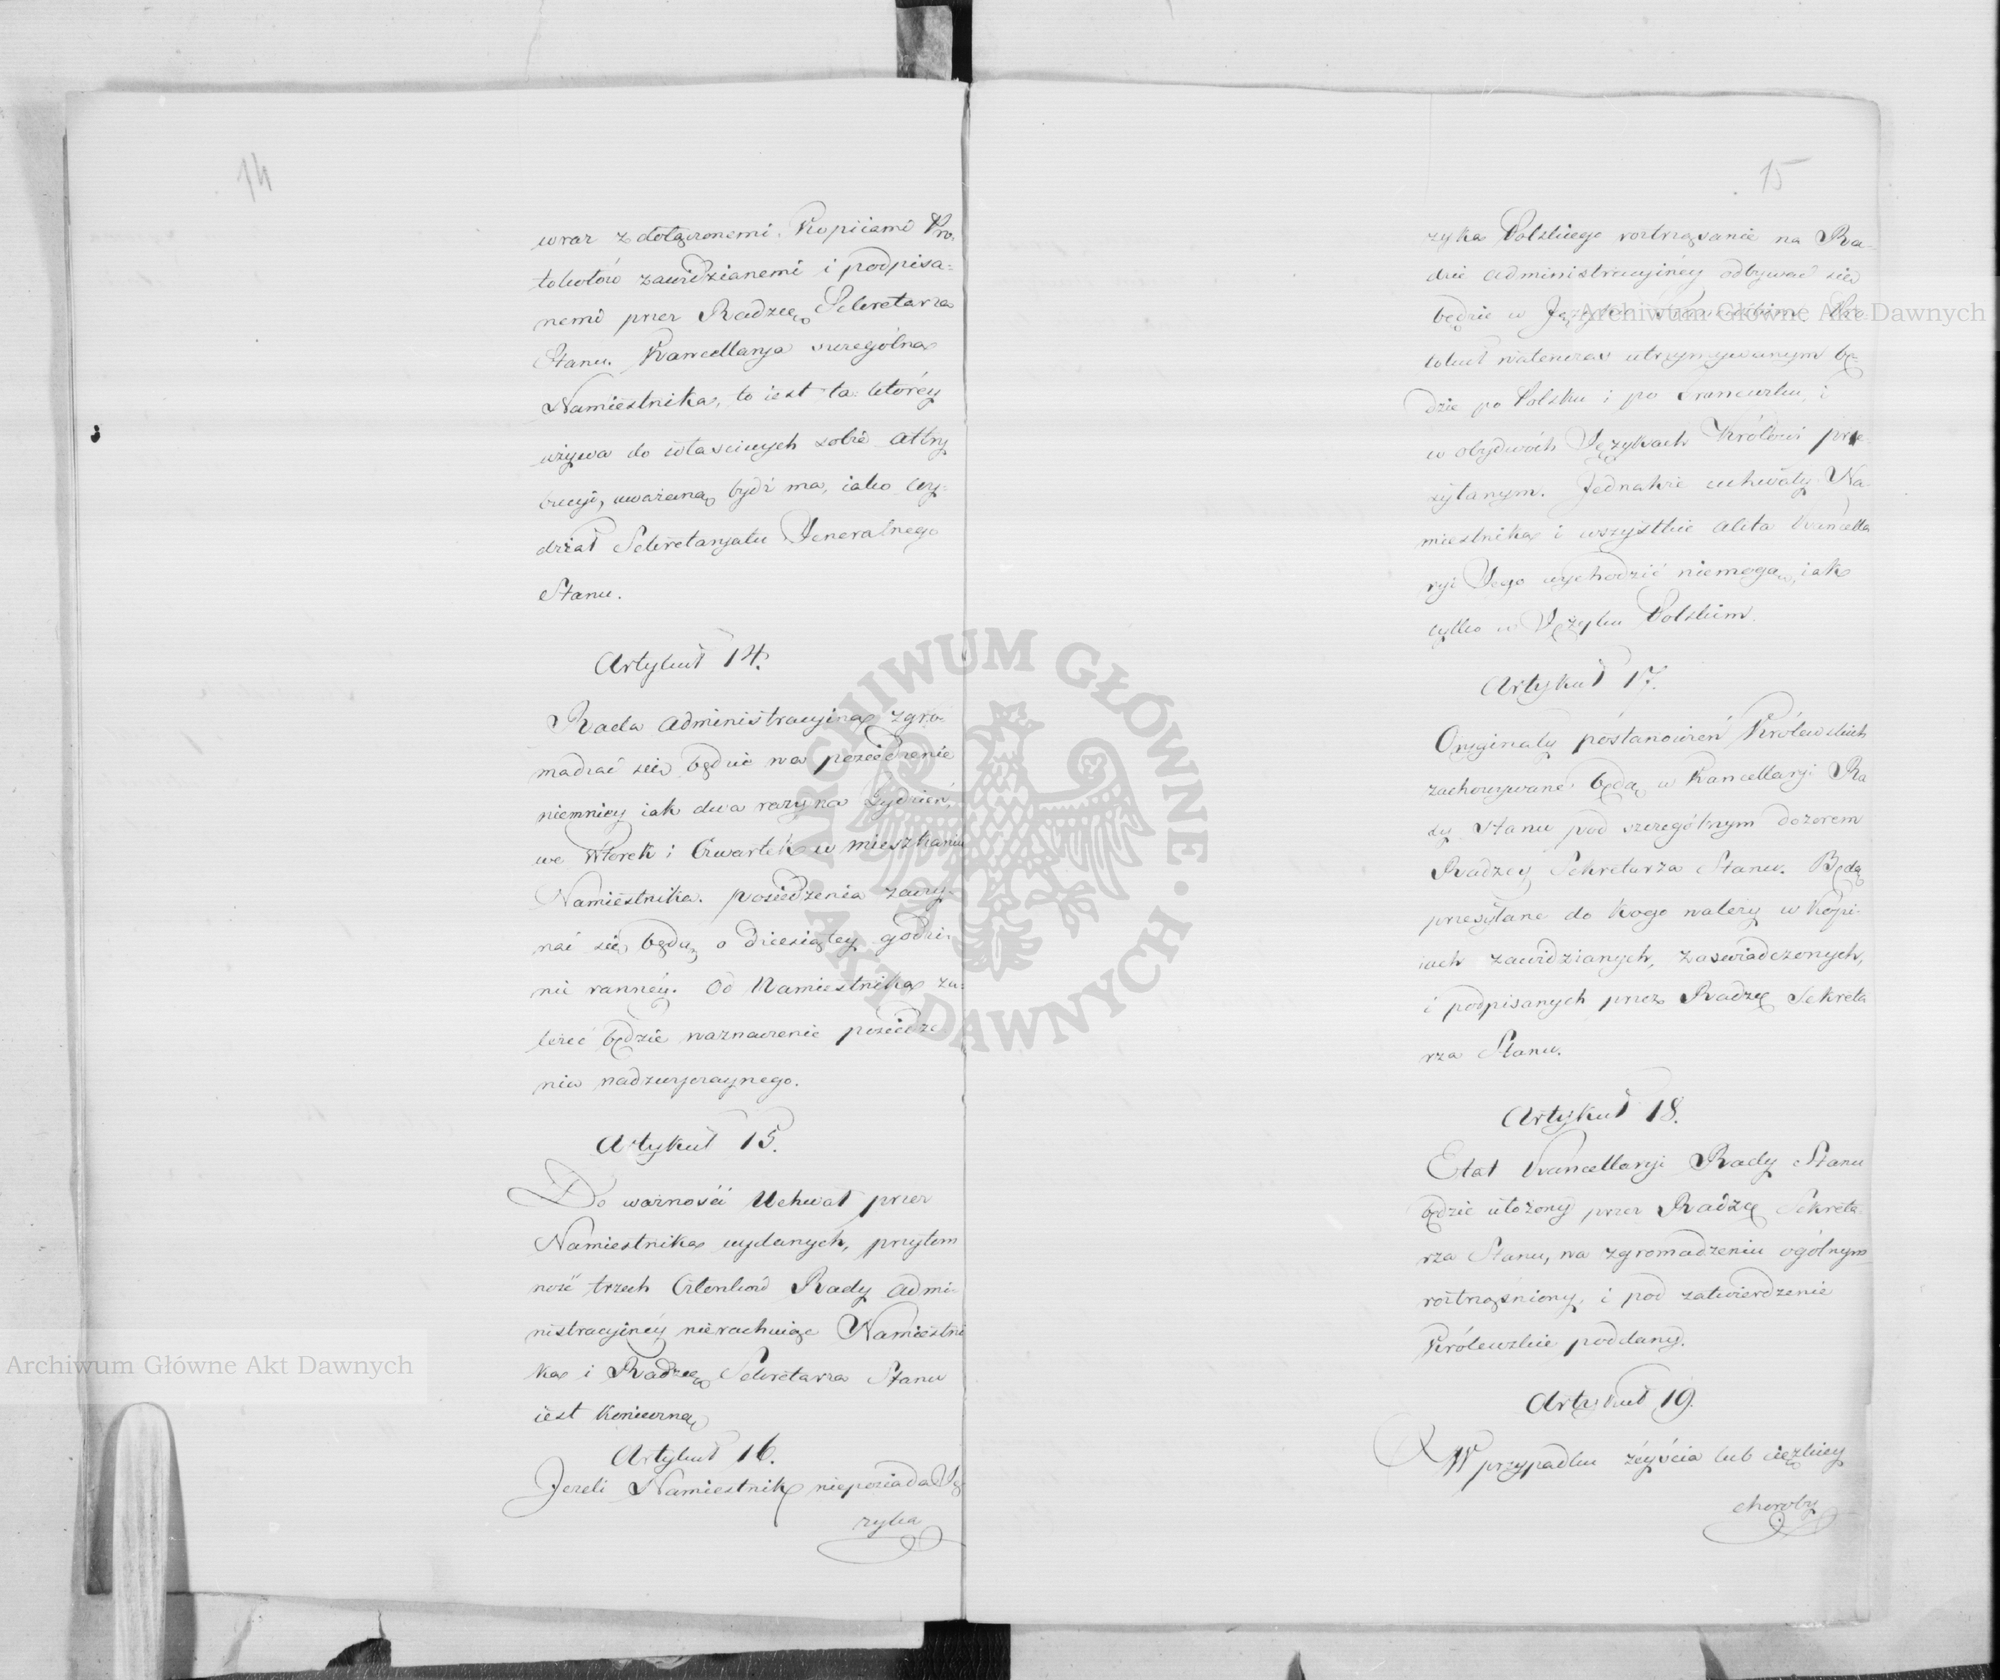 14
wraz z dołączonemi Kopiiami Pro,
tokułów zawidzianemi i podpisa=
nemi przez Radzcę Sekretarza
Stanu. Kancellarya szczególna
Namiestnika, to iest ta którey
używa do właściwych sobie Attry
bucyi, uważaną bydź ma, iako wy=
dział Sekretaryatu Jeneralnego
Stanu.
Artykuł 14.
Rada Administracyina zgro=
madzać się będzie na posiedzenie
niemniey iak dwa razy na Tydzień,
we Wtorek i Czwartek w mieszkaniu
Namiestnika. posiedzenia zaczy=
nać się będą o dziesiątey godzi=
nie ranney. Od Namiestnika za=
leżeć będzie naznaczenie posiedze
nia nadzwyczaynego.
Artykuł 15.
Do ważności Uchwał przez
Namiestnika wydanych, przytom
ność trzech Członków Rady Admi=
nistracyiney nierachuiąc Namiestni
ka i Radzcę Sekretarza Stanu
iest konieczną
Artykuł 16.
Jeżeli Namiestnik nieposiada Ję
zyka
15
zyka Polskiego roztrząsanie na Ra=
dzie Administracyiney odbywać się
będzie w Języku Francuzkim. Pro
tokuł natenczas utrzymywanym bę=
dzie po Polsku i po Francuzku, i
w obydwóch Językach Królowi prze
syłanym. Jednakże uchwały Na=
miestnika i wszystkie Akta Kancella
ryi Jego wychodzić niemogą, iak
tylko w Języku Polskim.
Artykuł 17.
Oryginały postanowień Królewskich
zachowywane będą w Kancellaryi Ra
dy Stanu pod szczególnym dozorem
Radzcy Sekretarza Stanu. Będą
przesyłane do kogo należy w Kopi=
iach zawidzianych, zaświadczonych,
i podpisanych przez Radzcę Sekreta
rza Stanu.
Artykuł 18.
Etat Kancellaryi Rady Stanu
będzie ułożony przez Radzcę Sekreta
rza Stanu, na zgromadzeniu ogólnym
roztrząśniony, i pod zatwierdzenie
Królewskie poddany.
Artykuł 19.
W przypadku zéyścia lub ciężkiey
choroby
Archiwum Główne Akt Dawnych
Archiwum Główne Akt Dawnych
ARCHIWUM GŁÓWNE · AKT DAWNYCH ·